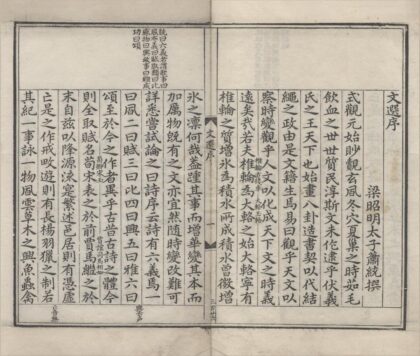 文選序
梁昭明太子蕭統撰
式觀元始眇覿玄風冬穴夏巢之時茹毛
飲血之世世質民淳斯文未作逮乎伏羲
氏之王天下也始畫八卦造書契以代結
繩之政由是文籍生焉易曰觀乎天文以
察時變觀乎人文以化成天下文之時義
遠矣哉若夫椎輪為大輅之始大輅寧有
椎輪之質增冰為積水所成積水曾微增
文選序
銑曰六義者謂歌事曰
風布義曰賦取類曰比
感物曰興政事曰雅成
功曰頌
冰之凜何哉蓋踵其事而增華變其本而
加厲物既有之文亦宜然隨時變改難可
詳悉嘗試論之曰詩序云詩有六義焉一
曰風二曰賦三曰比四曰興五曰雅六曰
頌至於今之作者異乎古昔古詩之體今
則全取賦名荀宋表之於前賈馬繼之於
末自茲以降源流寔繁述邑居則有憑虛
亡是之作戒畋遊則有長楊羽獵之制若
其紀一事詠一物風雲草木之興魚蟲禽